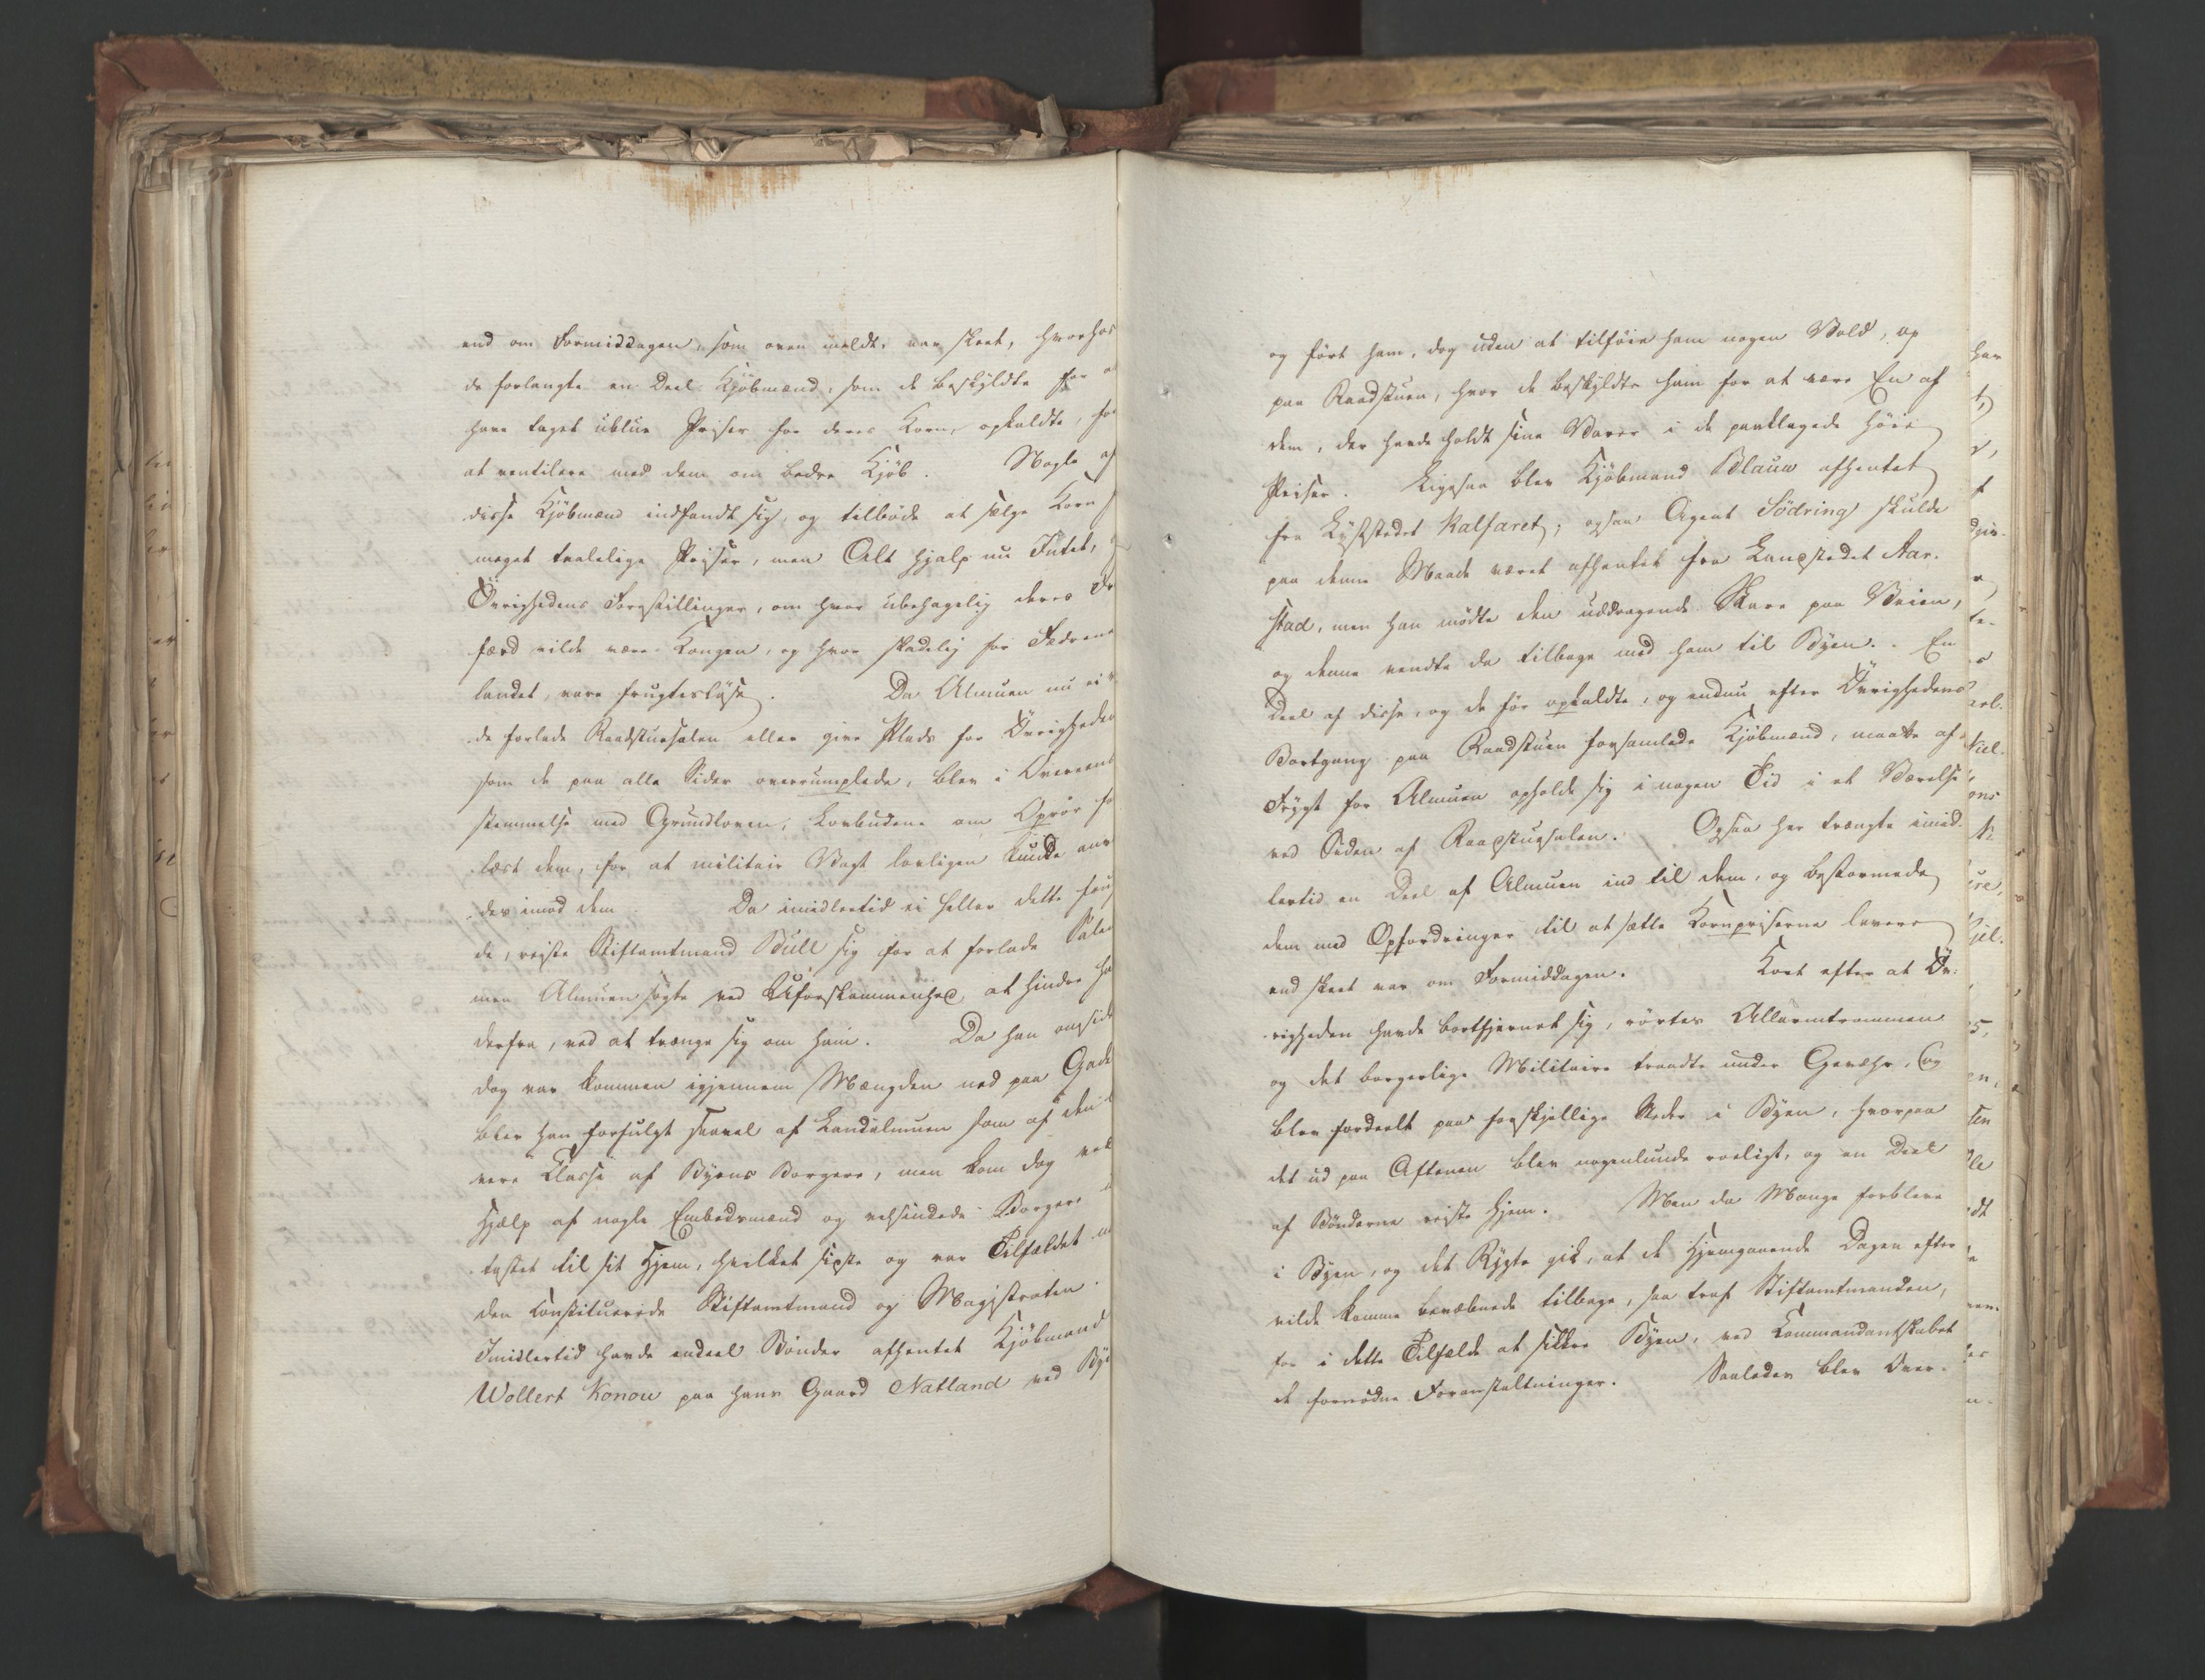 end om Formiddagen, som oven meldt, var skeet, hvorhos
de forlangte en Deel Kjöbmænd, som de beskyldte for a
have taget ublue Priser for deres Korn, opkaldte, for
at ventilere med dem om bedre Kjöb. Nogle af
disse Kjöbmænd indfandt sig, og tilböde at sælge Korn
meget taalelige Priser, men Alt hjalp nu Intet,
Övrighedens Forestillinger, om hvor ubehagelig deres
færd vilde være Kongen, og hvor skadelig for Fædrene
landet, vare frugteslöse. Da Almuen nu ei
de forlade Raadstuesalen eller give Plads for Övrigheden
som de paa alle Sider overrumplede, blev i Overeens
stemmelse med Grundloven, Lovbudene om Oprör fo
læst dem, for at militair Magt lovligen kunde anv
des imod dem. Da imidlertid ei heller dette fru
de, reiste Stiftamtmand Bull sig for at forlade Salen
men Almuen sögte ved Uforskammenhed, at hindre ha
derfra, ved at trænge sig om ham. Da han omsider
dog var kommen igjennem Mængden ned paa Gade
blev han forfulgt saavel af Landalmuen som af den
vere Classe af Byens Borgere, men kom dog ved
Hjælp af nogle Embedsmænd og velsindede Borgere
tastet til sit Hjem, hvilket sidste og var Tilfældet m
den constituerede Stiftamtmand og Magistraten.
Imidlertid havde endeel Bönder afhentet Kjöbmand
Wollert Konow paa hans Gaard Natland ved By
og fört ham, dog uden at tilföie ham nogen Vold, op
paa Raadstuen, hvor de beskyldte ham for at være En af
dem, der havde holdt sine Varer i de paaklagede höie
Priser. Ligesaa blev Kjöbmand Blauw afhentet
fra Lyststedet Kalfaret; ogsaa Agent Södring skulde
paa denne Maade været afhentet fra Landstedet Aar-
stad, men han mödte den uddragende Skare paa Veien,
og denne vendte da tilbage med ham til Byen. En
Deel af disse, og de för opkaldte, og endnu efter Övrighedens
Bortgang paa Raadstuen forsamlede Kjöbmænd, maatte af
Frygt for Almuen opholde sig i nogen Tid i et Værelse
ved Siden af Raadstuesalen. Ogsaa her trængte imid-
lertid en Deel af Almuen ind til dem, og bestormede
dem med Opfordringer til at sætte Kornpriserne lavere
end skeet var om Formiddagen. Kort efter at Öv-
righeden havde bortfjernet sig, rörtes Allarmtrommen
og det borgerlige Militaire traadte under Gevæhr, og
blev fordeelt paa forskjellige Steder i Byen, hvorpaa
det ud paa Aftenen blev nogenlunde roeligt, og en Deel
af Bönderne reiste hjem. Men da Mange forbleve
i Byen, og det Rygte gik, at de Hjemgaaende Dagen efter
vilde komme bevæbnede tilbage, saa traf Stiftamtmanden,
for i dette Tilfælde at sikkre Byen, ved Commandantskabet
de fornödne Foranstaltninger. Saaledes blev Over-